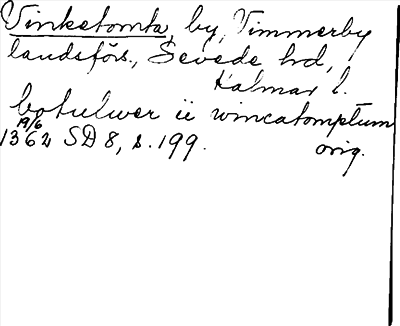 Vinketomta, by, Vimmerby
landsförs., Sevede hd,
Kalmar l.
botulwer ii wincatomptum
19/6
1362 SD 8, s. 199. orig.